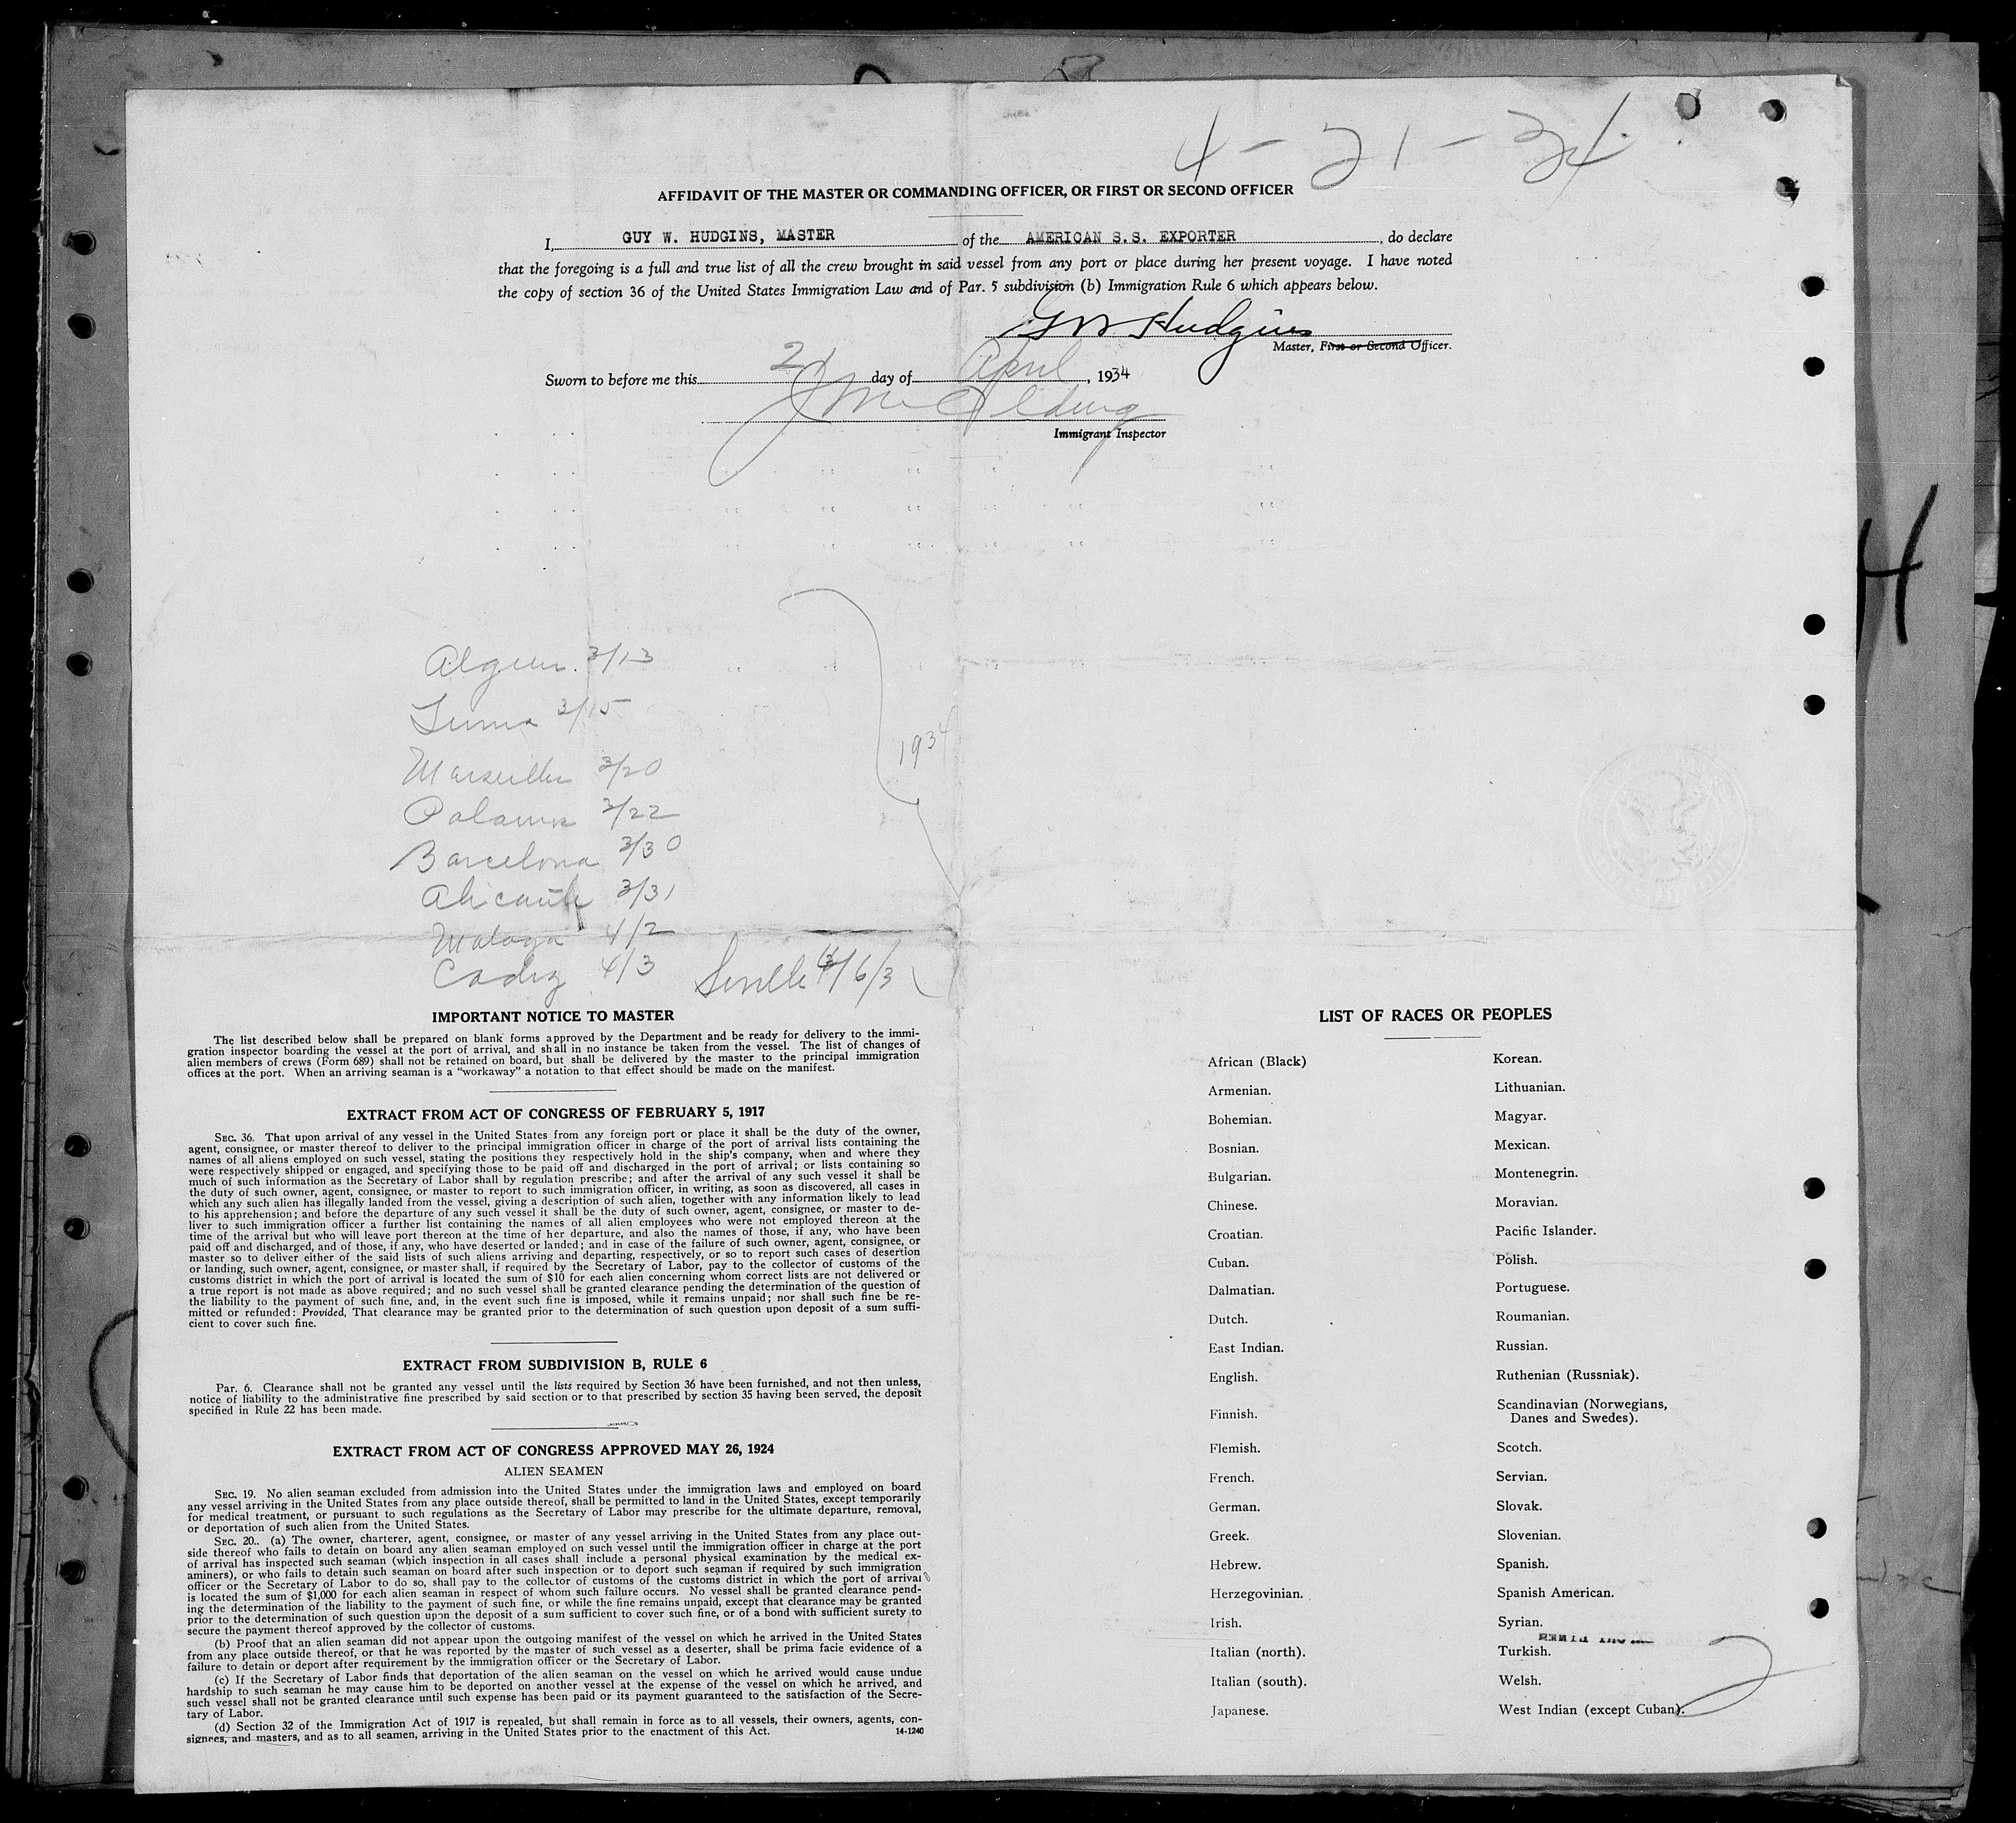 4-21-34
AFFIDAVIT OF THE MASTER OR COMMANDING OFFICER, OR FIRST OR SECOND OFFICER
I, GUY W. HUDGINS, MASTER of the AMERICAN S.S. EXPORTER, do declare
that the foregoing is a full and true list of all the crew brought in said vessel from any port or place during her present voyage. I have noted
the copy of section 36 of the United States Immigration Law and of Par. 5 subdivision (b) Immigration Rule 6 which appears below.
GW Hudgins
Master, First or Second Officer.
Sworn to before me this 21 day of April, 1934
Immigrant Inspector
3/13
3/15
1934
Marseilles 3/20
3/22
Barcelona 3/30
Alicante 3/31
Malaga 4/2
Cadiz 4/3 Seville
IMPORTANT NOTICE TO MASTER
The list described below shall be prepared on blank forms approved by the Department and be ready for delivery to the immi-
gration inspector boarding the vessel at the port of arrival, and shall in no instance be taken from the vessel. The list of changes of
alien members of crews (Form 689) shall not be retained on board, but shall be delivered by the master to the principal immigration
offices at the port. When an arriving seaman is a "workaway" a notation to that effect should be made on the manifest.
EXTRACT FROM ACT OF CONGRESS OF FEBRUARY 5, 1917
SEC. 36. That upon arrival of any vessel in the United States from any foreign port or place it shall be the duty of the owner,
agent, consignee, or master thereof to deliver to the principal immigration officer in charge of the port of arrival lists containing the
names of all aliens employed on such vessel, stating the positions they respectively hold in the ship's company, when and where they
were respectively shipped or engaged, and specifying those to be paid off and discharged in the port of arrival; or lists containing so
much of such information as the Secretary of Labor shall by regulation prescribe; and after the arrival of any such vessel it shall be
the duty of such owner, agent, consignee, or master to report to such immigration officer, in writing, as soon as discovered, all cases in
which any such alien has illegally landed from the vessel, giving a description of such alien, together with any information likely to lead
to his apprehension; and before the departure of any such vessel it shall be the duty of such owner, agent, consignee, or master to de-
liver to such immigration officer a further list containing the names of all alien employees who were not employed thereon at the
time of the arrival but who will leave port thereon at the time of her departure, and also the names of those, if any, who have been
paid off and discharged, and of those, if any, who have deserted or landed; and in case of the failure of such owner, agent, consignee, or
master so to deliver either of the said lists of such aliens arriving and departing, respectively, or so to report such cases of desertion
or landing, such owner, agent, consignee, or master shall, if required by the Secretary of Labor, pay to the collector of customs of the
customs district in which the port of arrival is located the sum of $10 for each alien concerning whom correct lists are not delivered or
a true report is not made as above required; and no such vessel shall be granted clearance pending the determination of the question of
the liability to the payment of such fine, and, in the event such fine is imposed, while it remains unpaid; nor shall such fine be re-
mitted or refunded: Provided, That clearance may be granted prior to the determination of such question upon deposit of a sum suffi-
cient to cover such fine.
EXTRACT FROM SUBDIVISION B, RULE 6
Par. 6. Clearance shall not be granted any vessel until the lists required by Section 36 have been furnished, and not then unless,
notice of liability to the administrative fine prescribed by said section or to that prescribed by section 35 having been served, the deposit
specified in Rule 22 has been made.
EXTRACT FROM ACT OF CONGRESS APPROVED MAY 26, 1924
ALIEN SEAMEN
SEC. 19. No alien seaman excluded from admission into the United States under the immigration laws and employed on board
any vessel arriving in the United States from any place outside thereof, shall be permitted to land in the United States, except temporarily
for medical treatment, or pursuant to such regulations as the Secretary of Labor may prescribe for the ultimate departure, removal,
or deportation of such alien from the United States.
SEC. 20.. (a) The owner, charterer, agent, consignee, or master of any vessel arriving in the United States from any place out-
side thereof who fails to detain on board any alien seaman employed on such vessel until the immigration officer in charge at the port
of arrival has inspected such seaman (which inspection in all cases shall include a personal physical examination by the medical ex-
aminers), or who fails to detain such seaman on board after such inspection or to deport such seaman if required by such immigration
officer or the Secretary of Labor to do so, shall pay to the collector of customs of the customs district in which the port of arrival
is located the sum of $1,000 for each alien seaman in respect of whom such failure occurs. No vessel shall be granted clearance pend-
ing the determination of the liability to the payment of such fine, or while the fine remains unpaid, except that clearance may be granted
prior to the determination of such question upon the deposit of a sum sufficient to cover such fine, or of a bond with sufficient surety to
secure the payment thereof approved by the collector of customs.
(b) Proof that an alien seaman did not appear upon the outgoing manifest of the vessel on which he arrived in the United States
from any place outside thereof, or that he was reported by the master of such vessel as a deserter, shall be prima facie evidence of a
failure to detain or deport after requirement by the immigration officer or the Secretary of Labor.
(c) If the Secretary of Labor finds that deportation of the alien seaman on the vessel on which he arrived would cause undue
hardship to such seaman he may cause him to be deported on another vessel at the expense of the vessel on which he arrived, and
such vessel shall not be granted clearance until such expense has been paid or its payment guaranteed to the satisfaction of the Secre-
tary of Labor.
(d) Section 32 of the Immigration Act of 1917 is repealed, but shall remain in force as to all vessels, their owners, agents, con-
signees, and masters, and as to all seamen, arriving in the United States prior to the enactment of this Act.
14-1240
LIST OF RACES OR PEOPLES
African (Black)
Armenian.
Bohemian.
Bosnian.
Bulgarian.
Chinese.
Croatian.
Cuban.
Dalmatian.
Dutch.
East Indian.
English.
Finnish.
Flemish.
French.
German.
Greek.
Hebrew.
Herzegovinian.
Irish.
Italian (north).
Italian (south).
Japanese.
Korean.
Lithuanian.
Magyar.
Mexican.
Montenegrin.
Moravian.
Pacific Islander.
Polish.
Portuguese.
Roumanian.
Russian.
Ruthenian (Russniak).
Scandinavian (Norwegians,
Danes and Swedes).
Scotch.
Servian.
Slovak.
Slovenian.
Spanish.
Spanish American.
Syrian.
Turkish.
Welsh.
West Indian (except Cuban).